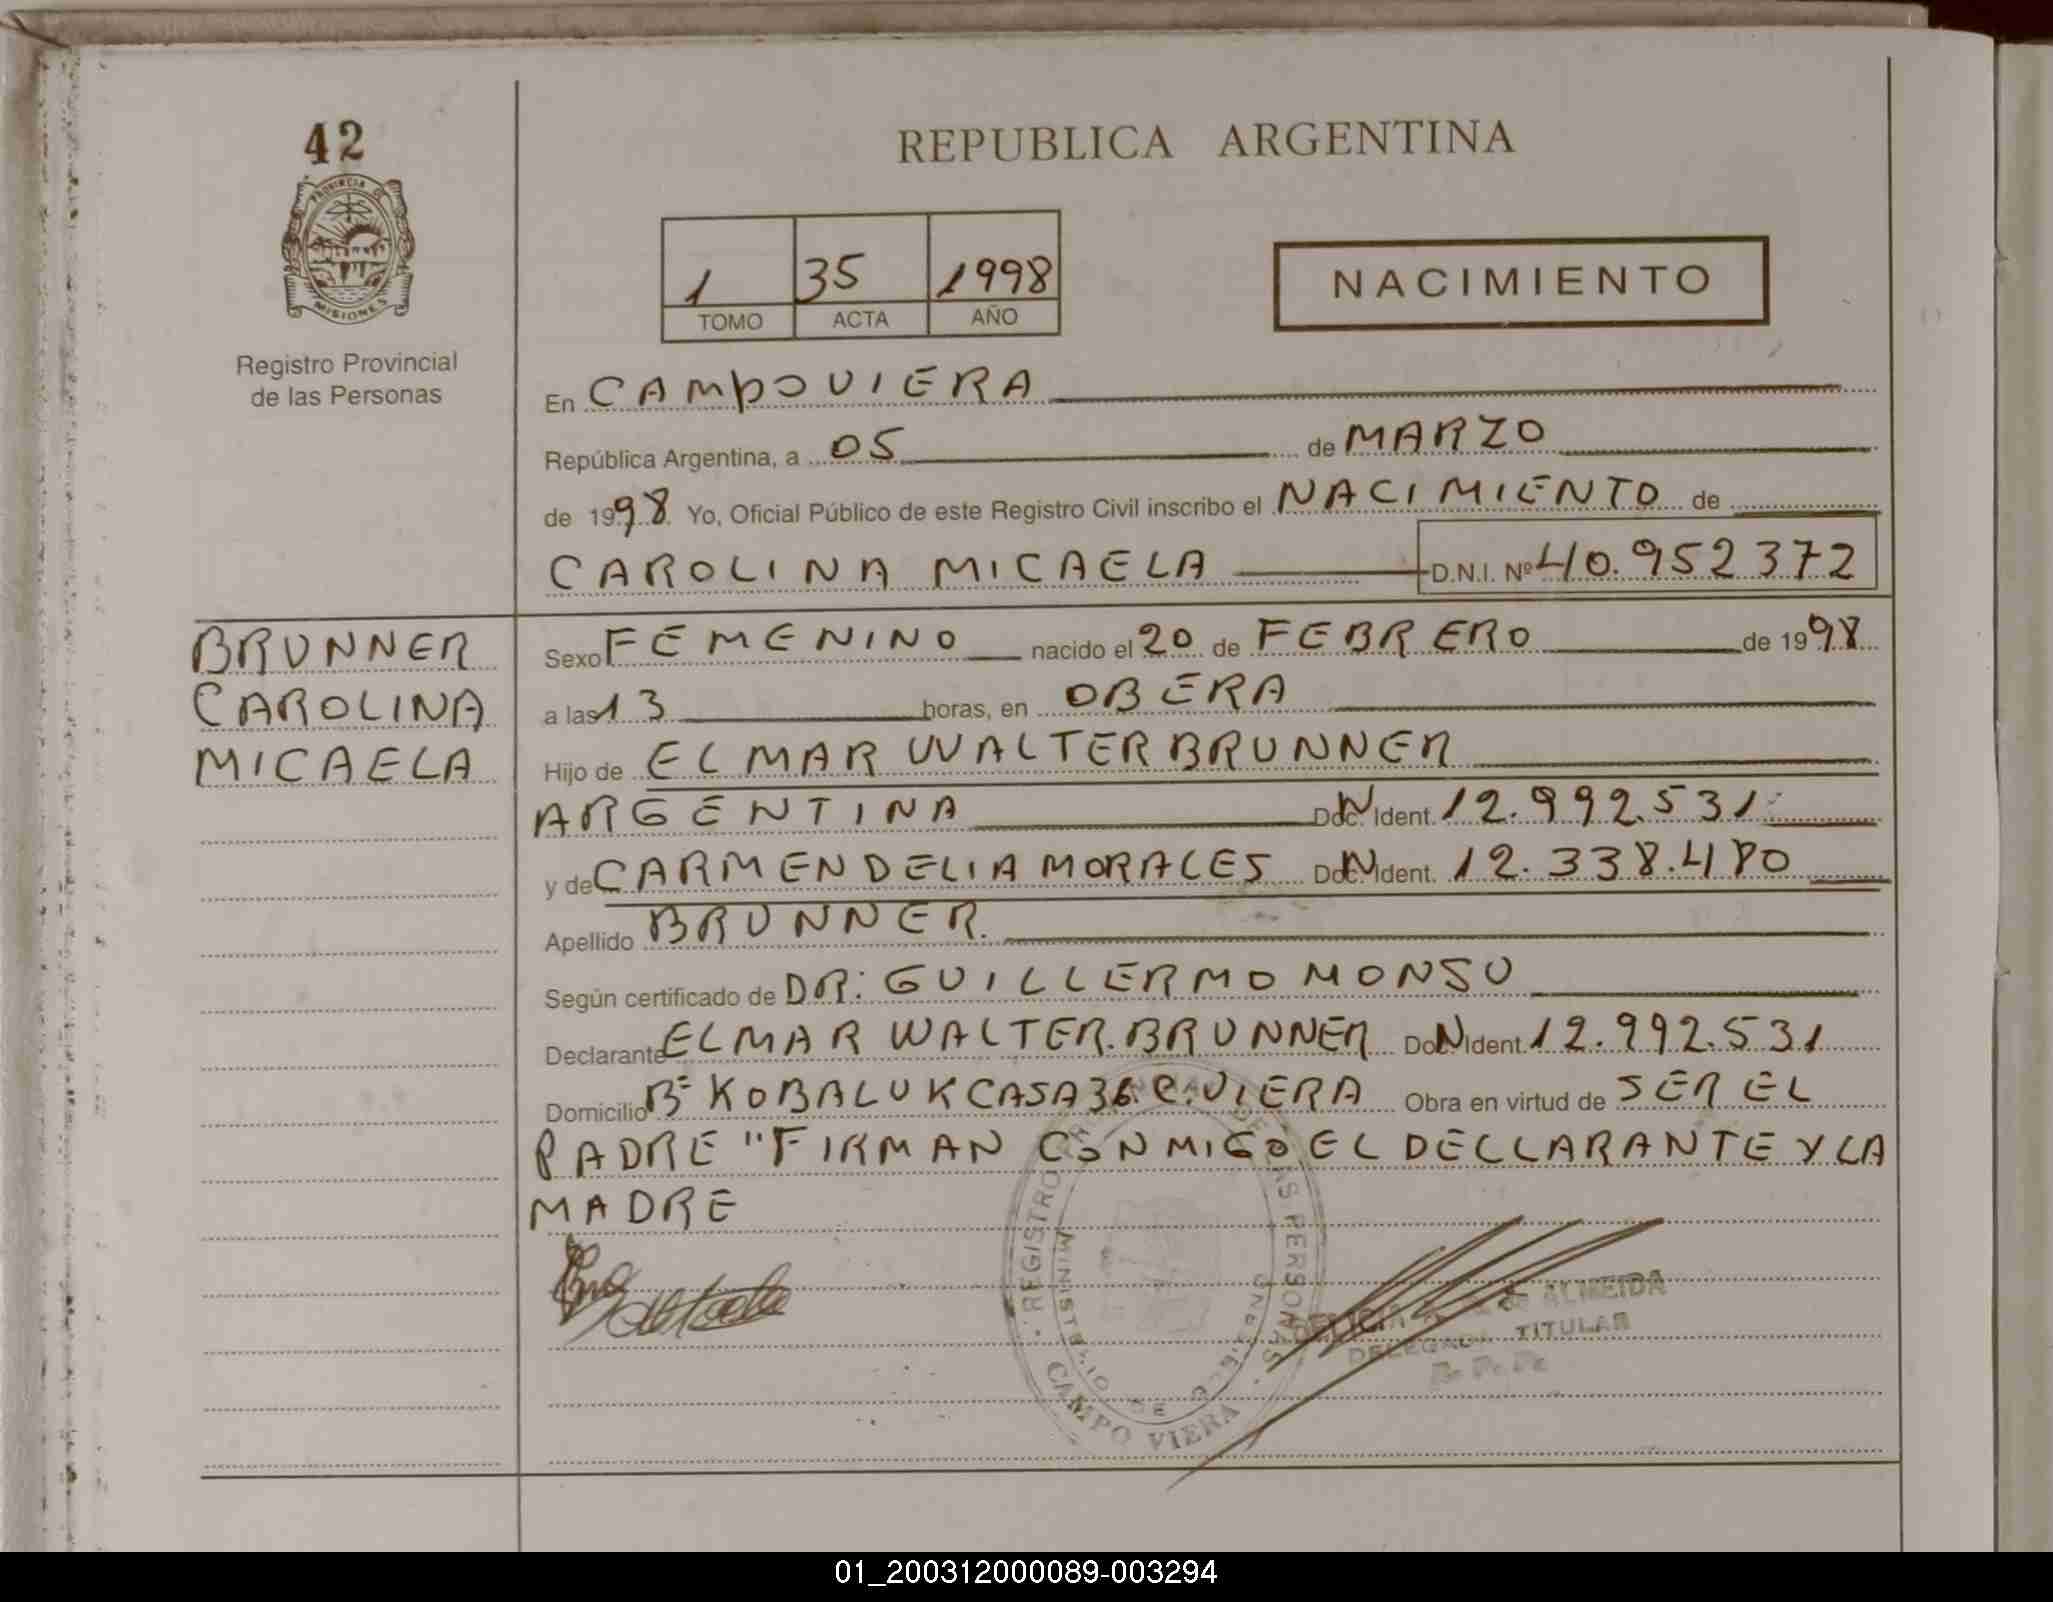 42
REPUBLICA ARGENTINA
PROVINCIA DE
MISIONES
1 35 1998
TOMO ACTA AÑO
NACIMIENTO
Registro Provincial
de las Personas
En CAMPO VIERA
República Argentina, a 05 de MARZO
de 1998 Yo, Oficial Público de este Registro Civil inscribo el NACIMIENTO de
CAROLINA MICAELA D.N.I. Nº 40.952372
BRUNNER
CAROLINA
MICAELA
Sexo FEMENINO nacido el 20 de FEBRERO de 1998
a las 13 horas, en OBERA
Hijo de ELMAR WALTER BRUNNER
ARGENTINA Doc. N Ident. 12.992.531
y de CARMEN DELIA MORALES Doc. N Ident. 12.338.480
Apellido BRUNNER.
Según certificado de DR: GUILLERMO MONSU
Declarante ELMAR WALTER.BRUNNER Doc. N Ident. 12.992.531
Domicilio Bº KOBALUK CASA 36.C.VIERA Obra en virtud de SER EL
PADRE "FIRMAN CONMIGO EL DECLARANTE Y LA
MADRE
REGISTRO DE LAS PERSONAS
MINISTERIO DE
CAMPO VIERA
de ALMEIDA
DELEGADA TITULAR
01_200312000089-003294